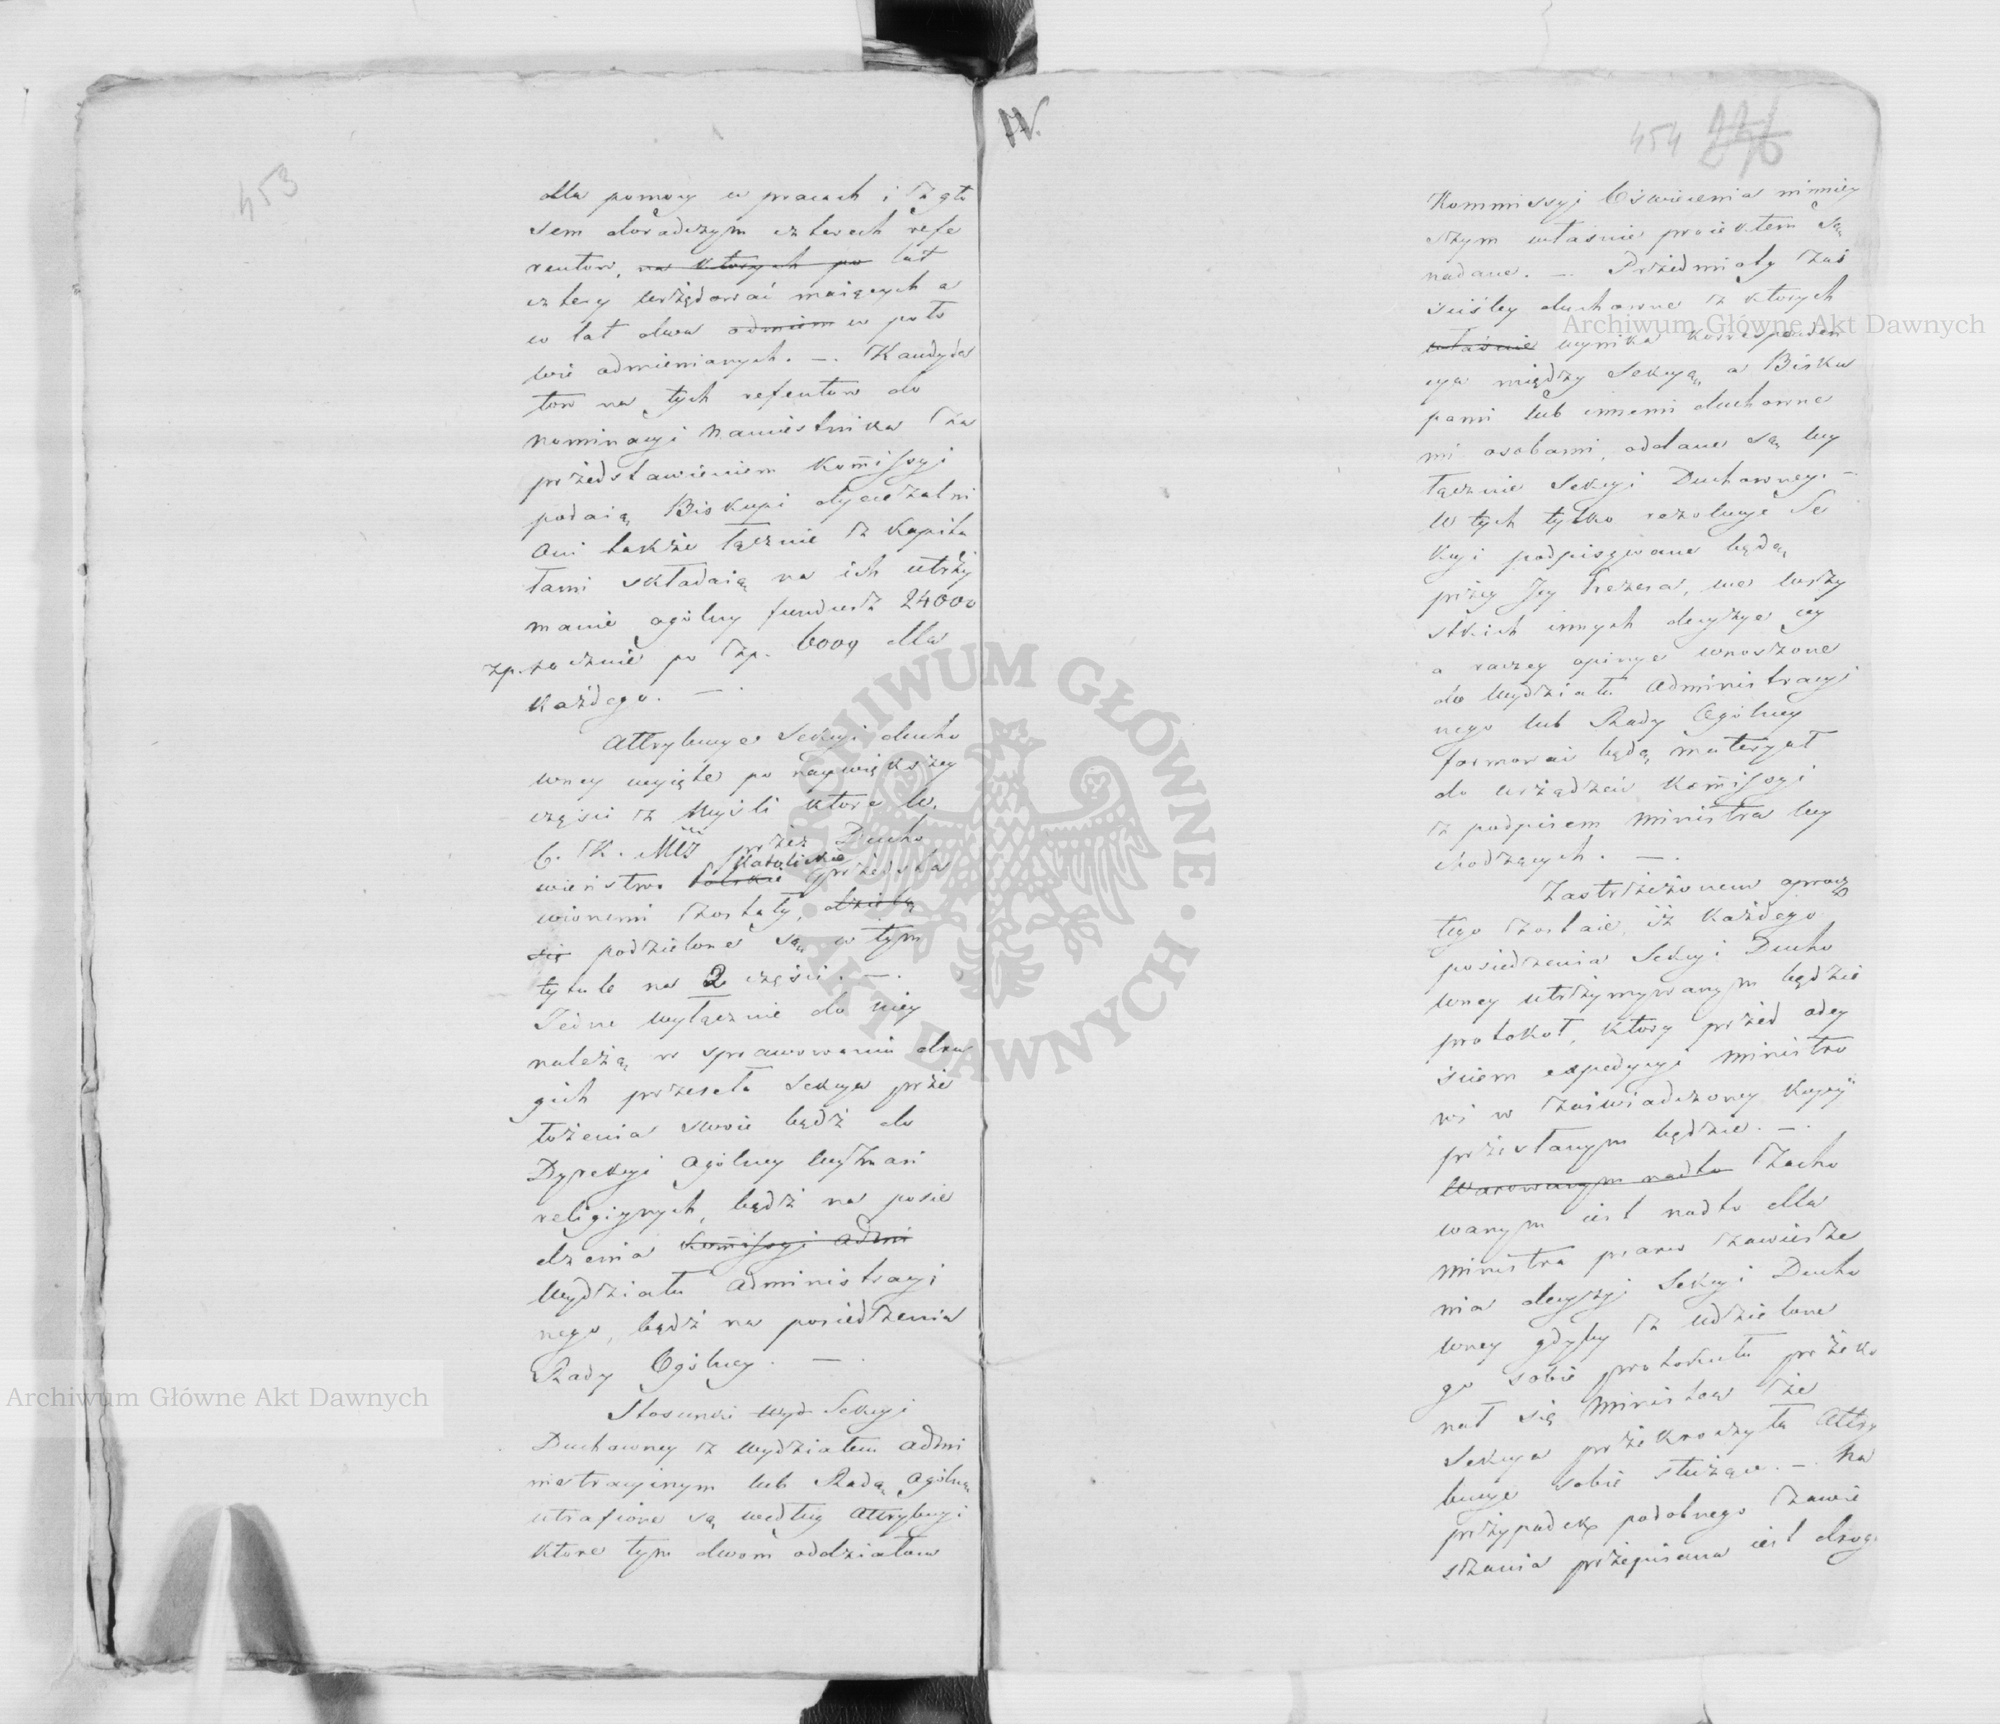 453
dla pomocy w pracach i z gło
sem doradczym czterech refe
rentów, na ktorych po lat
cztery urzędować maiących a
w lat dwa odmien w poło
wie odmienianych. —. Kandyda
tow na tych referentow do
nominacyi Namiestnika za
przedstawieniem Kom̄issyi
podaią Biskupi dyecezalni
Oni także łącznie z Kapitu
łami składaią na ich utrzy
manie ogólny fundusz 24000
zp. rocznie po zp. 6000 dla
każdego. —.
Attrybucye Sekcyi ducho
wney wyięte po naywiększey
części z Myśli ktore W.
C. K. Mci przez Ducho
Katolickie
wieństwo Polskie przedsta
wionemi zostały, dzielą
się podzielone są w tym
tytule na 2 części. —.
Jedne wyłącznie do niey
należą w sprawowaniu dru
gich przeseła Sekcya prze
łożenia swoie bądź do
Dyrekcyi Ogólney Wyznań
religiynych, bądź na posie
dzenia Kom̄issyi admi
Wydziału Administracyi
nego, bądź na posiedzenia
Rady Ogólney. —.
Stosunki Wyd Sekcyi
Duchowney z Wydziałem Admi
nistracyinym lub Radą Ogólną
utrafione są według Attrybucyi
ktore tym dwom oddziałom
IV.
454 236
Kommissyi Oświecenia ninniey
szym właśnie proiektem są
nadane. —. Przedmioty zaś
ściśley duchowne z ktorych
właśnie wynika korresponden
cya między Sekcyą a Bisku
pami lub innemi duchowne
mi osobami, oddane są wy
łącznie Sekcyi Duchowney. —
W tych tylko rezolucye Se
kcyi podpisywane będą
przez Jey Prezesa, we wszy
stkich innych decyzye czy
a raczey opinye wnoszone
do Wydziału Administracyi
nego lub Rady Ogólney
formować będą materyał
do urządzeń Kom̄issyi
z podpisem Ministra wy
chodzących. —.
Zastrzeżonem oprocz
tego zostaie, iż każdego
posiedzenia Sekcyi Ducho
wney utrzymywanym będzie
protokoł, ktory przed odey
ściem expedycyi Ministro
wi w zaświadczoney kopyi
przesłanym będzie. —.
Warowanym nadto Zacho
wanym iest nadto dla
Ministra prawo zawiesze
nia decyzyi Sekcyi Ducho
wney gdyby z udzielone
go sobie protokułu przeko
nał się Minister że
Sekcya przekroczyła Attry
bucye sobie służące. —. Na
przypadek podobnego zawie
szania przepisana iest drog
Archiwum Główne Akt Dawnych
Archiwum Główne Akt Dawnych
ARCHIWUM GŁÓWNE · AKT DAWNYCH ·